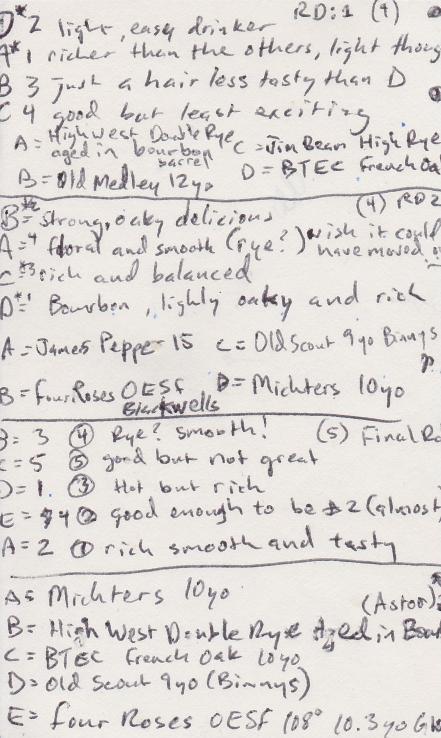 D* 2 light, easy drinker RD:1 (4)
A* 1 richer than the others, light thoug
B 3 just a hair less tasty than D
C 4 good but least exciting
A = High West Double Rye aged in bourbon barrel
C = Jim Beam High Rye
B = Old Medley 12yo
D = BTEC French Oa
(4) RD2
B = *2 strong, oaky delicious
A = 4 floral and smooth (rye?) wish it could have moved
C *3 rich and balanced
D *1 Bourbon, lighly oaky and rich
A = James Peppe 15
C = Old Scout 9yo Binnys
B = Four Roses OESF Blackwells
D = Michters 10yo
B = 3 ④ Rye? smooth! (5) Final Ro
C = 5 ⑤ good but not great
D = 1 ③ Hot but rich
E = 4 ② good enough to be #2 (almost
A = 2 ① rich smooth and tasty
A = Michters 10yo
(Astor)
B = High West Double Rye Aged in Bour
C = BTEC French Oak 10yo
D = Old Scout 9yo (Binnys)
E = Four Roses OESF 108° 10.3yo